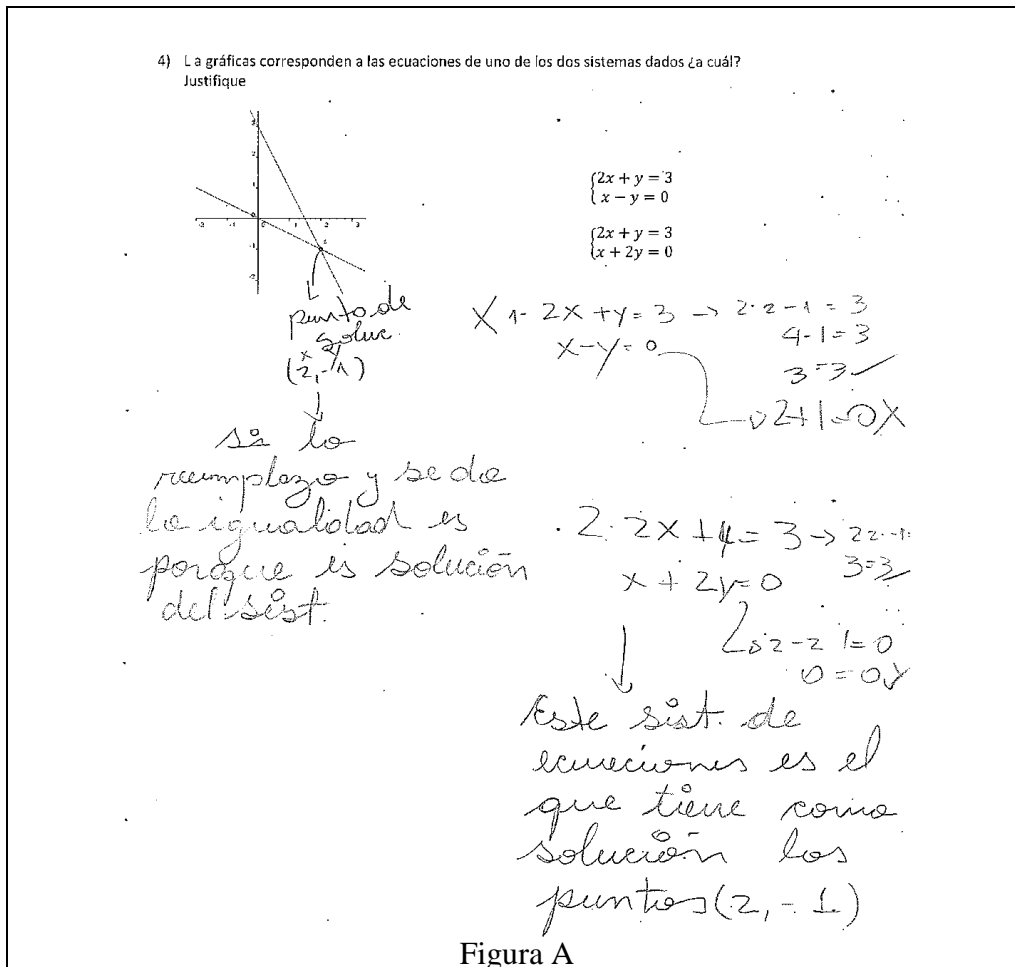 4) L a gráficas corresponden a las ecuaciones de uno de los dos sistemas dados ¿a cuál?
Justifique
3
2
1
-2 -1 0 0 1 2 3
-1
-2
{2x + y = 3
{x − y = 0
{2x + y = 3
{x + 2y = 0
punto de
soluc.
x y
(2, -1)
si lo
reemplazo y se da
la igualdad es
porque es solución
del sist.
X 1- 2x + y = 3 → 2·2 - 1 = 3
x - y = 0
4 - 1 = 3
3 = 3 ✓
→ 2+1=0X
· 2· 2x + y = 3 →
x + 2y = 0
3=3
2-2·1=0
0=0
Este sist. de
ecuaciones es el
que tiene como
solución los
puntos (2, -1)
Figura A